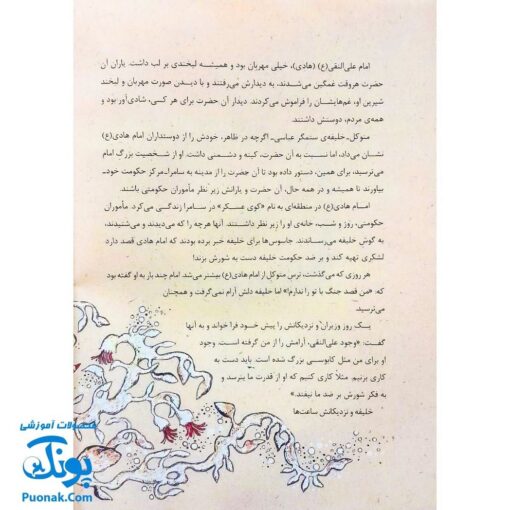 امام علی‌النقی(ع) (هادی)، خیلی مهربان بود و همیشه لبخندی بر لب داشت. یاران آن
حضرت هروقت غمگین می‌شدند، به دیدارش می‌رفتند و با دیدن صورت مهربان و لبخند
شیرین او، غم‌هایشان را فراموش می‌کردند. دیدار آن حضرت برای هر کسی، شادی‌آور بود و
همه‌ی مردم، دوستش داشتند.
متوکل-خلیفه‌ی ستمگر عباسی- اگرچه در ظاهر، خودش را از دوستداران امام هادی(ع)
نشان می‌داد، اما نسبت به آن حضرت، کینه و دشمنی داشت. او از شخصیت بزرگ امام
می‌ترسید، برای همین، دستور داده بود تا آن حضرت را از مدینه به سامرا- مرکز حکومت خود-
بیاورند تا همیشه و در همه حال، آن حضرت و یارانش زیر نظر مأموران حکومتی باشند.
امامـ هادی(ع) در منطقه‌ای به نام «کوی عسکر» در سامرا زندگی می‌کرد. مأموران
حکومتی، روز و شب، خانه‌ی او را زیر نظر داشتند. آنها هرچه را که می‌دیدند و می‌شنیدند،
به گوش خلیفه می‌رساندند. جاسوس‌ها برای خلیفه خبر برده بودند که امام هادی قصد دارد
لشکری تهیه کند و بر ضد حکومت خلیفه دست به شورش بزند!
هر روزی که می‌گذشت، ترس متوکل از امام هادی(ع) بیشتر می‌شد. امام چند بار به او گفته بود
که: «من قصد جنگ با تو را ندارم!» اما خلیفه دلش آرام نمی‌گرفت و همچنان
می‌ترسید.
یک روز وزیران و نزدیکانش را پیش خود فرا خواند و به آنها
گفت: «وجود علی‌النقی، آرامش را از من گرفته است. وجود
او برای من مثل کابوسی بزرگ شده است. باید دست به
کاری بزنیم. مثلاً کاری کنیم که او از قدرت ما بترسد و
به فکر شورش بر ضد ما نیفتد.»
خلیفه و نزدیکانش ساعت‌ها
محصولات آموزشی
پونک
Puonak.Com